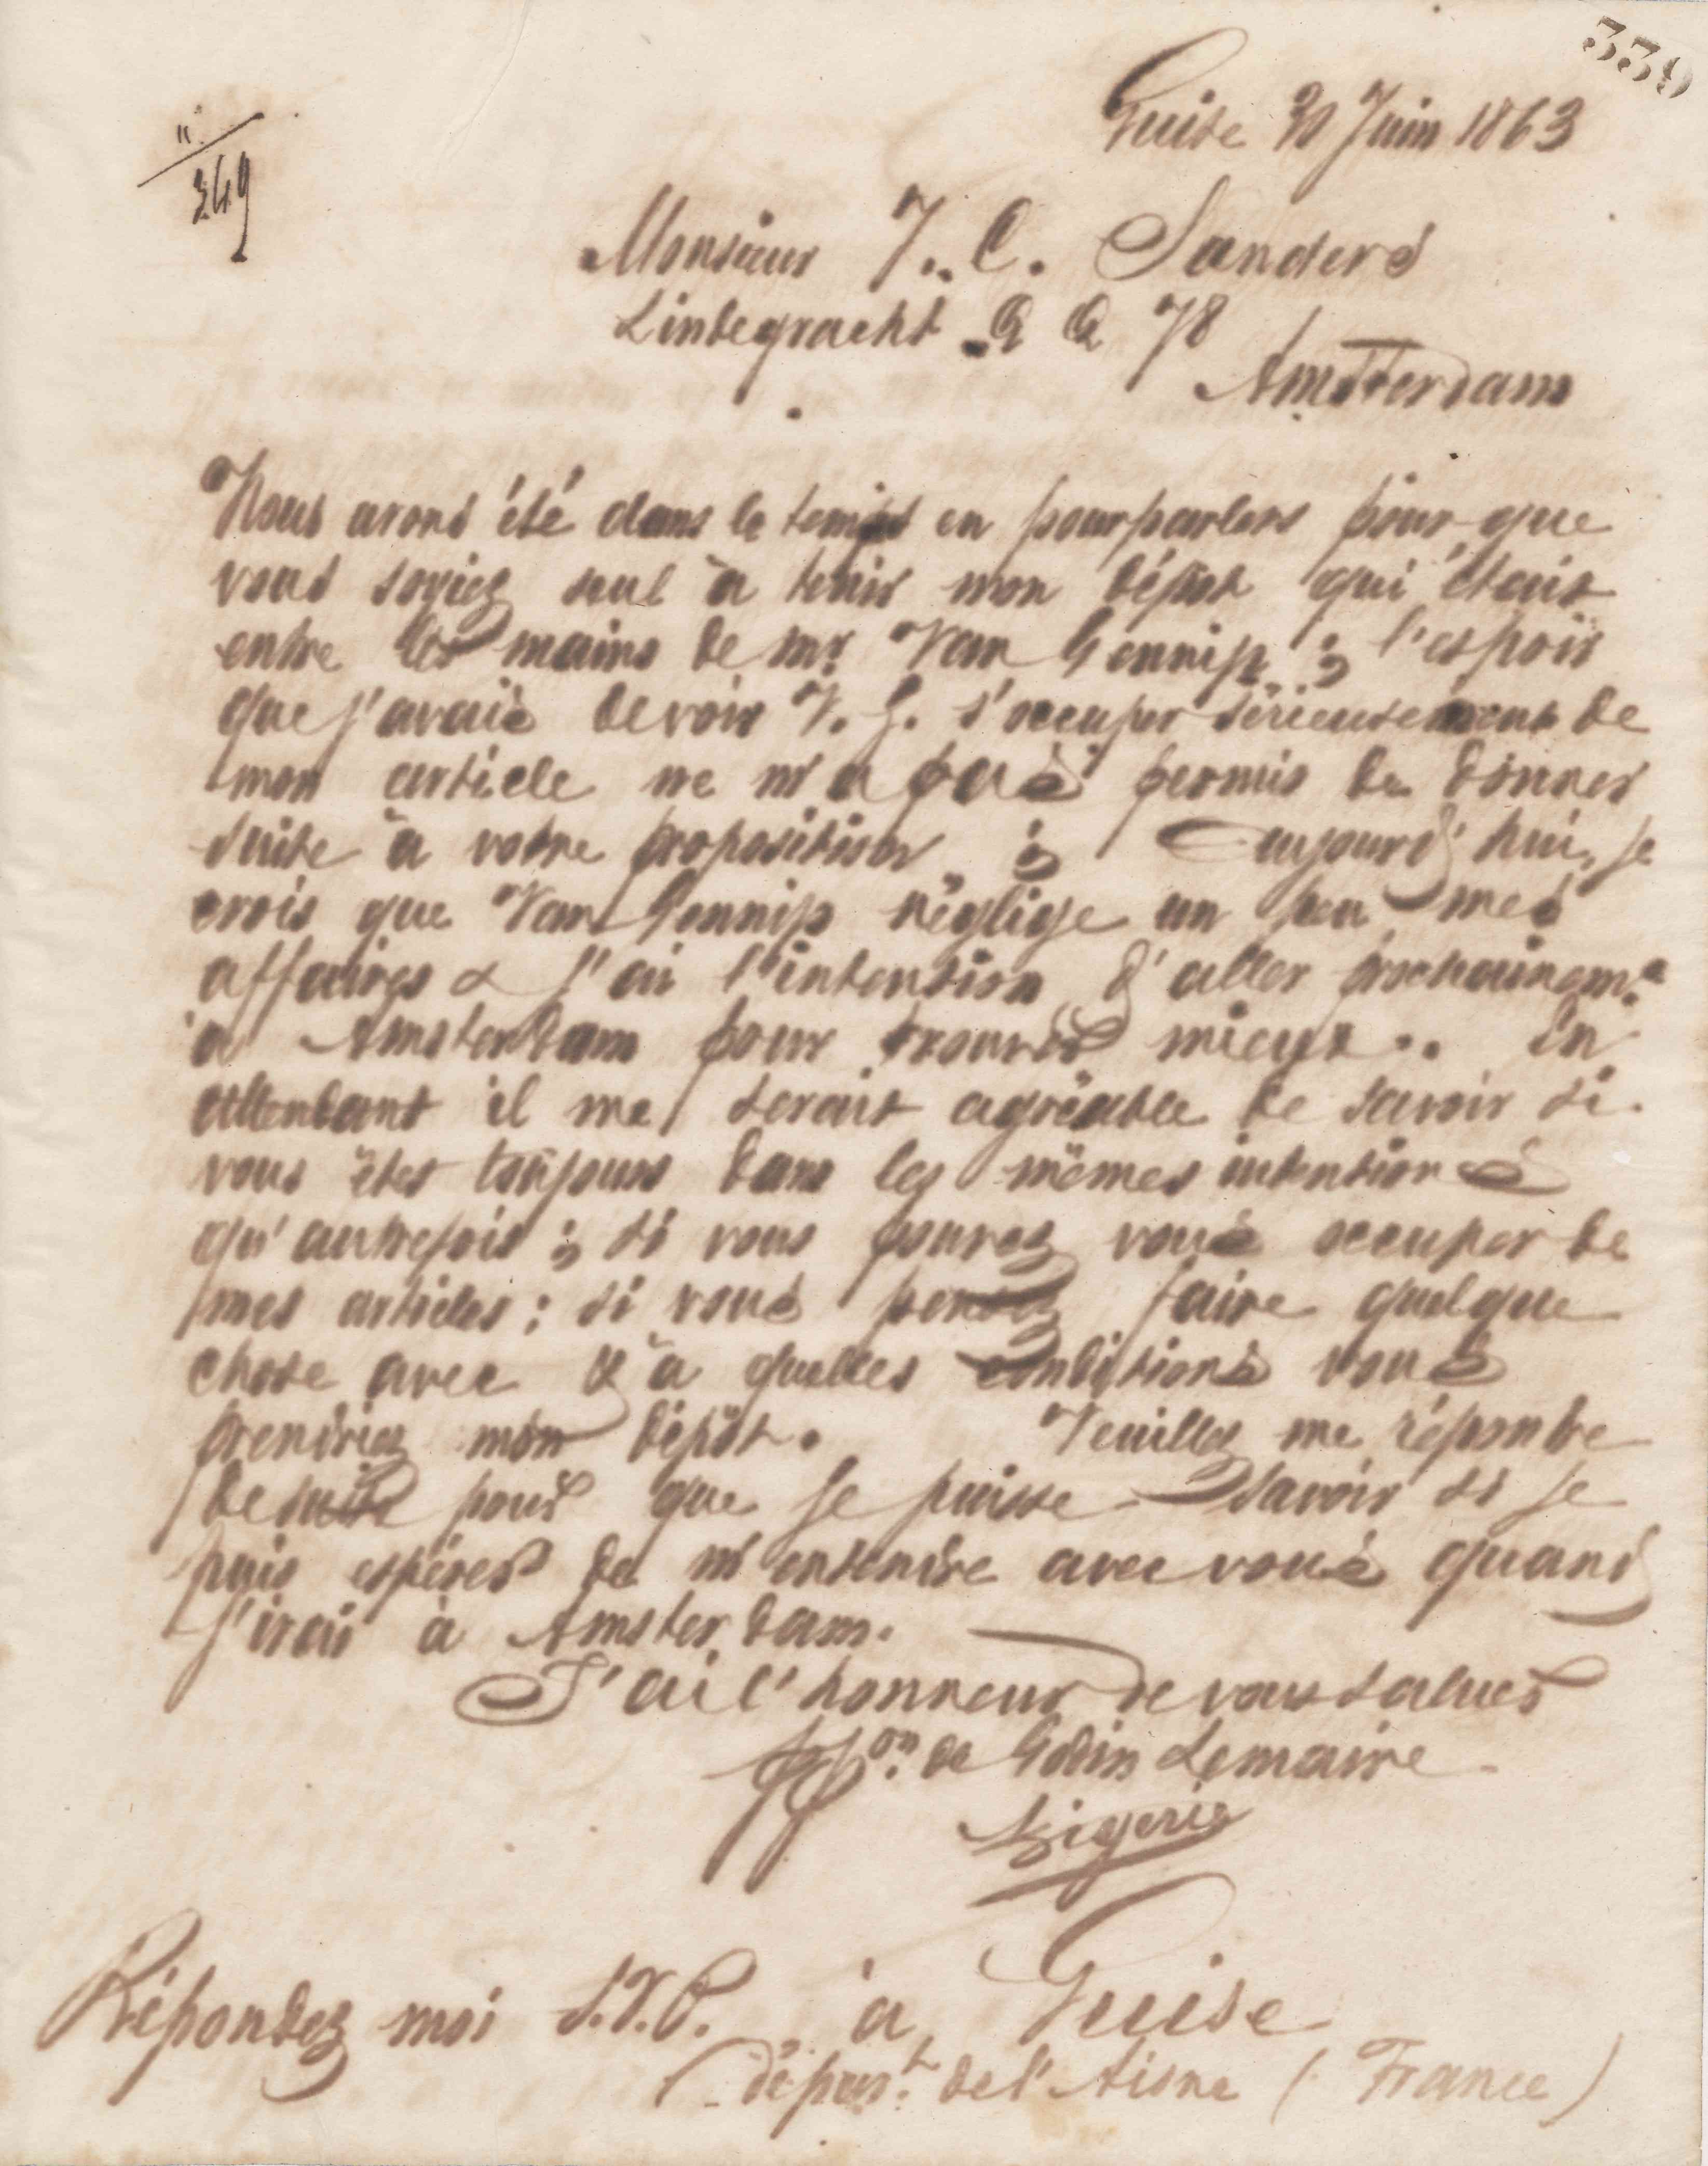 339
Guise 30 Juin 1863
"/249
Monsieur J. C. Sanders
Lindegracht Q Q 78
Amsterdam
Nous avons été dans le temps en pourparlers pour que
vous soyiez seul à tenir mon dépôt qui était
entre les mains de Mr. Van Gennip ; l'espoir
que j'avais de voir V. G. s'occuper sérieusement de
mon article ne m'a pas permis de donner
suite à votre proposition ; aujourd'hui, je
crois que Van Gennip néglige un peu mes
affaires & j'ai l'intention d'aller prochainemt
à Amsterdam pour trouver mieux.. En
attendant il me serait agréable de savoir si
vous êtes toujours dans les mêmes intentions
qu'autrefois ; si vous pouvez vous occuper de
mes articles ; si vous pensez faire quelque
chose avec & à quelles conditions vous
prendriez mon dépôt. Veuillez me répondre
de suite pour que je puisse savoir si je
puis espérer de m'entendre avec vous quand
j'irai à Amsterdam.
J'ai l'honneur de vous saluer
ppon. de Godin Lemaire
Répondez moi S.V.P. à Guise
départ. de l'Aisne (France)